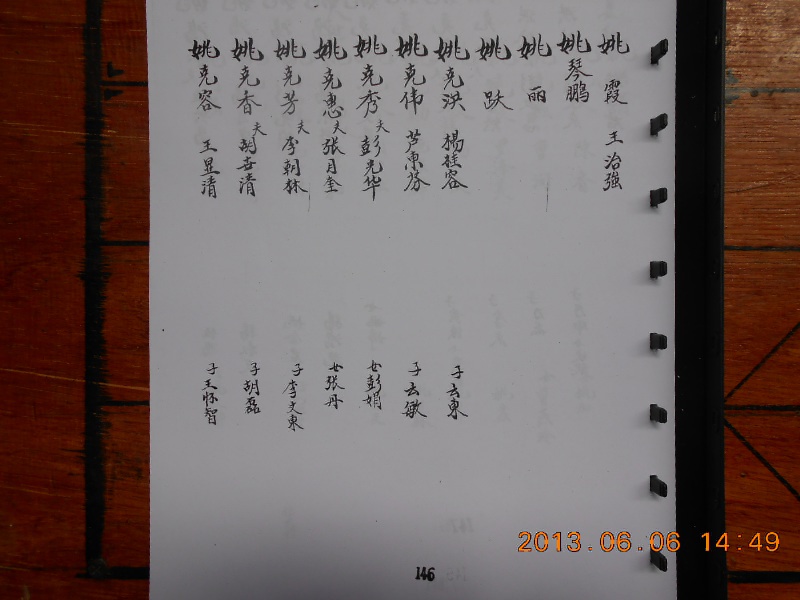 姚霞 王治强
姚琴鹏
姚丽
姚跃
姚克洪 杨桂容 子 云东
姚克伟 芦东芬 子 云敏
姚克秀 夫彭光华 女彭娟
姚克惠 夫张月奎 女张丹
姚克芳 夫李朝林 子李文东
姚克香 夫胡世清 子胡磊
姚克容 王显清 子王怀智
146
2013.06.06 14:49